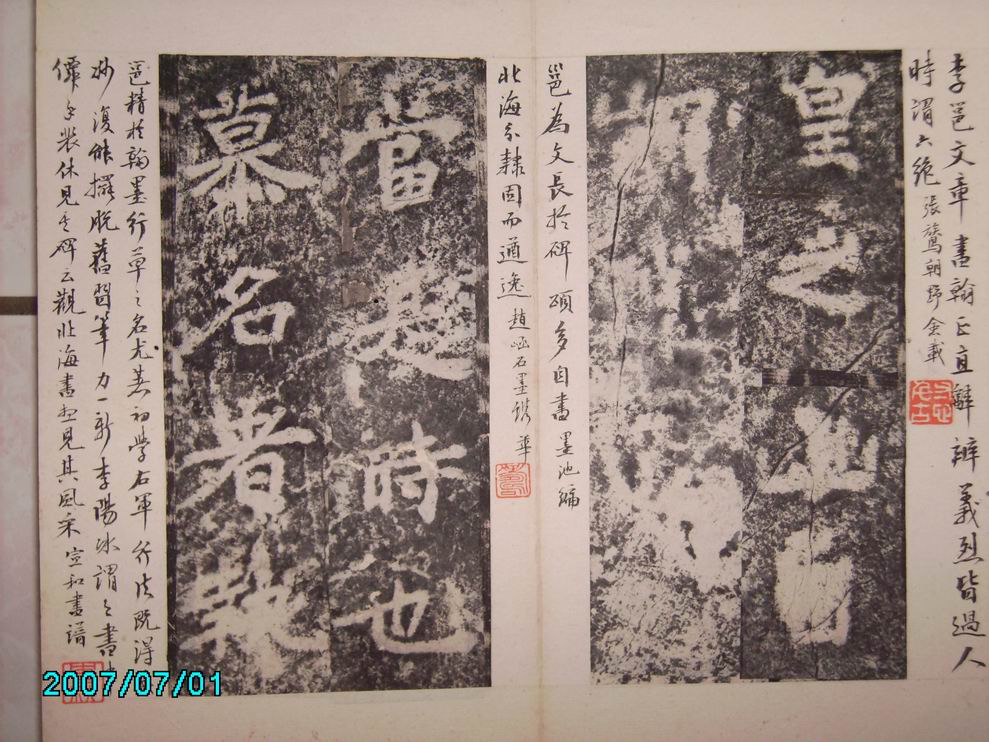 李邕文章書翰正直辭辨義烈皆過人
時謂六絕 張鷟朝野僉載
皇之
邕為文長於碑頌多自書 墨池編
北海分隸固而遒逸 趙崡石墨鐫華
當是時也
慕名者執
邕精於翰墨行草之名尤著初學右軍行法既得
妙復能擺脫舊習筆力一新李陽冰謂之書中
僊手裴休見其碑云觀北海書想見其風采 宣和書譜
2007/07/01